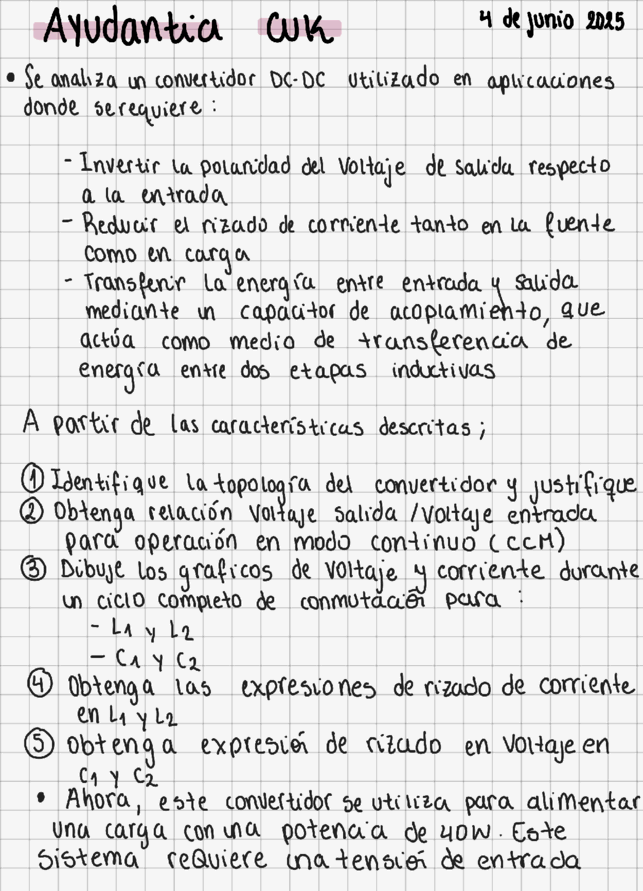 Ayudantia CUK
4 de junio 2025
• Se analiza un convertidor DC-DC utilizado en aplicaciones
donde se requiere :
- Invertir la polaridad del Voltaje de salida respecto
a la entrada
- Reducir el rizado de corriente tanto en la fuente
como en carga
- Transferir la energía entre entrada y salida
mediante un capacitor de acoplamiento, que
actúa como medio de transferencia de
energía entre dos etapas inductivas
A partir de las características descritas ;
① Identifique la topología del convertidor y justifique
② Obtenga relación Voltaje salida / Voltaje entrada
para operación en modo continuo (CCM)
③ Dibuje los graficos de Voltaje y corriente durante
un ciclo completo de conmutación para :
- L1 y L2
- C1 y C2
④ Obtenga las expresiones de rizado de corriente
en L1 y L2
⑤ Obtenga expresión de rizado en Voltaje en
C1 y C2
• Ahora, este convertidor se utiliza para alimentar
una carga con una potencia de 40W. Este
sistema requiere una tensión de entrada